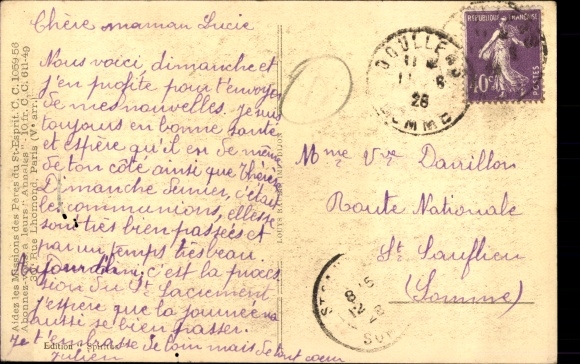 Chère maman Lucie
Nous voici dimanche et
j'en profite pour t'envoyer
de mes nouvelles. je suis
toujours en bonne santé
et espère qu'il en de même
de ton côté ainsi que Thérèse
Dimanche dernier, c'était
les communions, elles se
sont très bien passées et
par un temps très beau.
Aujourd'hui, c'est la proces
sion du St Sacrement
J'espère que la journée va
aussi se bien passer.
Je t'embrasse de loin mais de tout coeur
Julien
Edition Spiritus
Aidez les Missions des Pères du St-Esprit. C. C. 1059-56
Abonnez-vous à leurs "Annales", 10 fr. C. C. 611-49
30, Rue Lhomond, Paris (Vᵉ arr.)
DOULLENS
11 - 6
26
SOMME
RÉPUBLIQUE FRANÇAISE
40c
POSTES
Mme Vve Davillon
Route Nationale
St Sauflieu
(Somme)